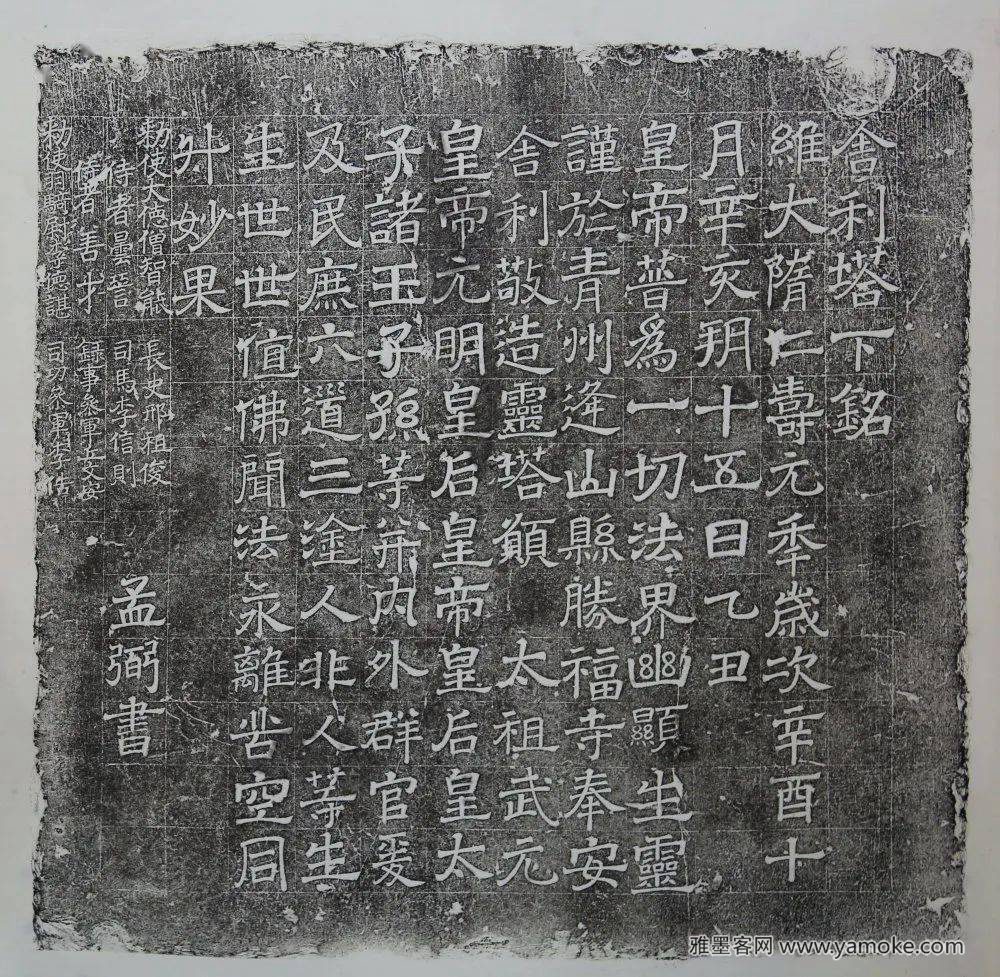 舍利塔下銘
維大隋仁壽元年歲次辛酉十
月辛亥朔十五日乙丑
皇帝普為一切法界幽顯生靈
謹於青州逄山縣勝福寺奉安
舍利敬造靈塔願 太祖武元
皇帝元明皇后皇帝皇后皇太
子諸王子孫等并內外群官爰
及民庶六道三塗人非人等生
生世世值佛聞法永離苦空同
升妙果
敕使大德僧智能
侍者曇晉
侍者善才
敕使羽騎尉李德諶
長史邢祖俊
司馬李信則
錄事參軍丘文安
司功參軍李佸
孟弼書
雅墨客网 www.yamoke.com